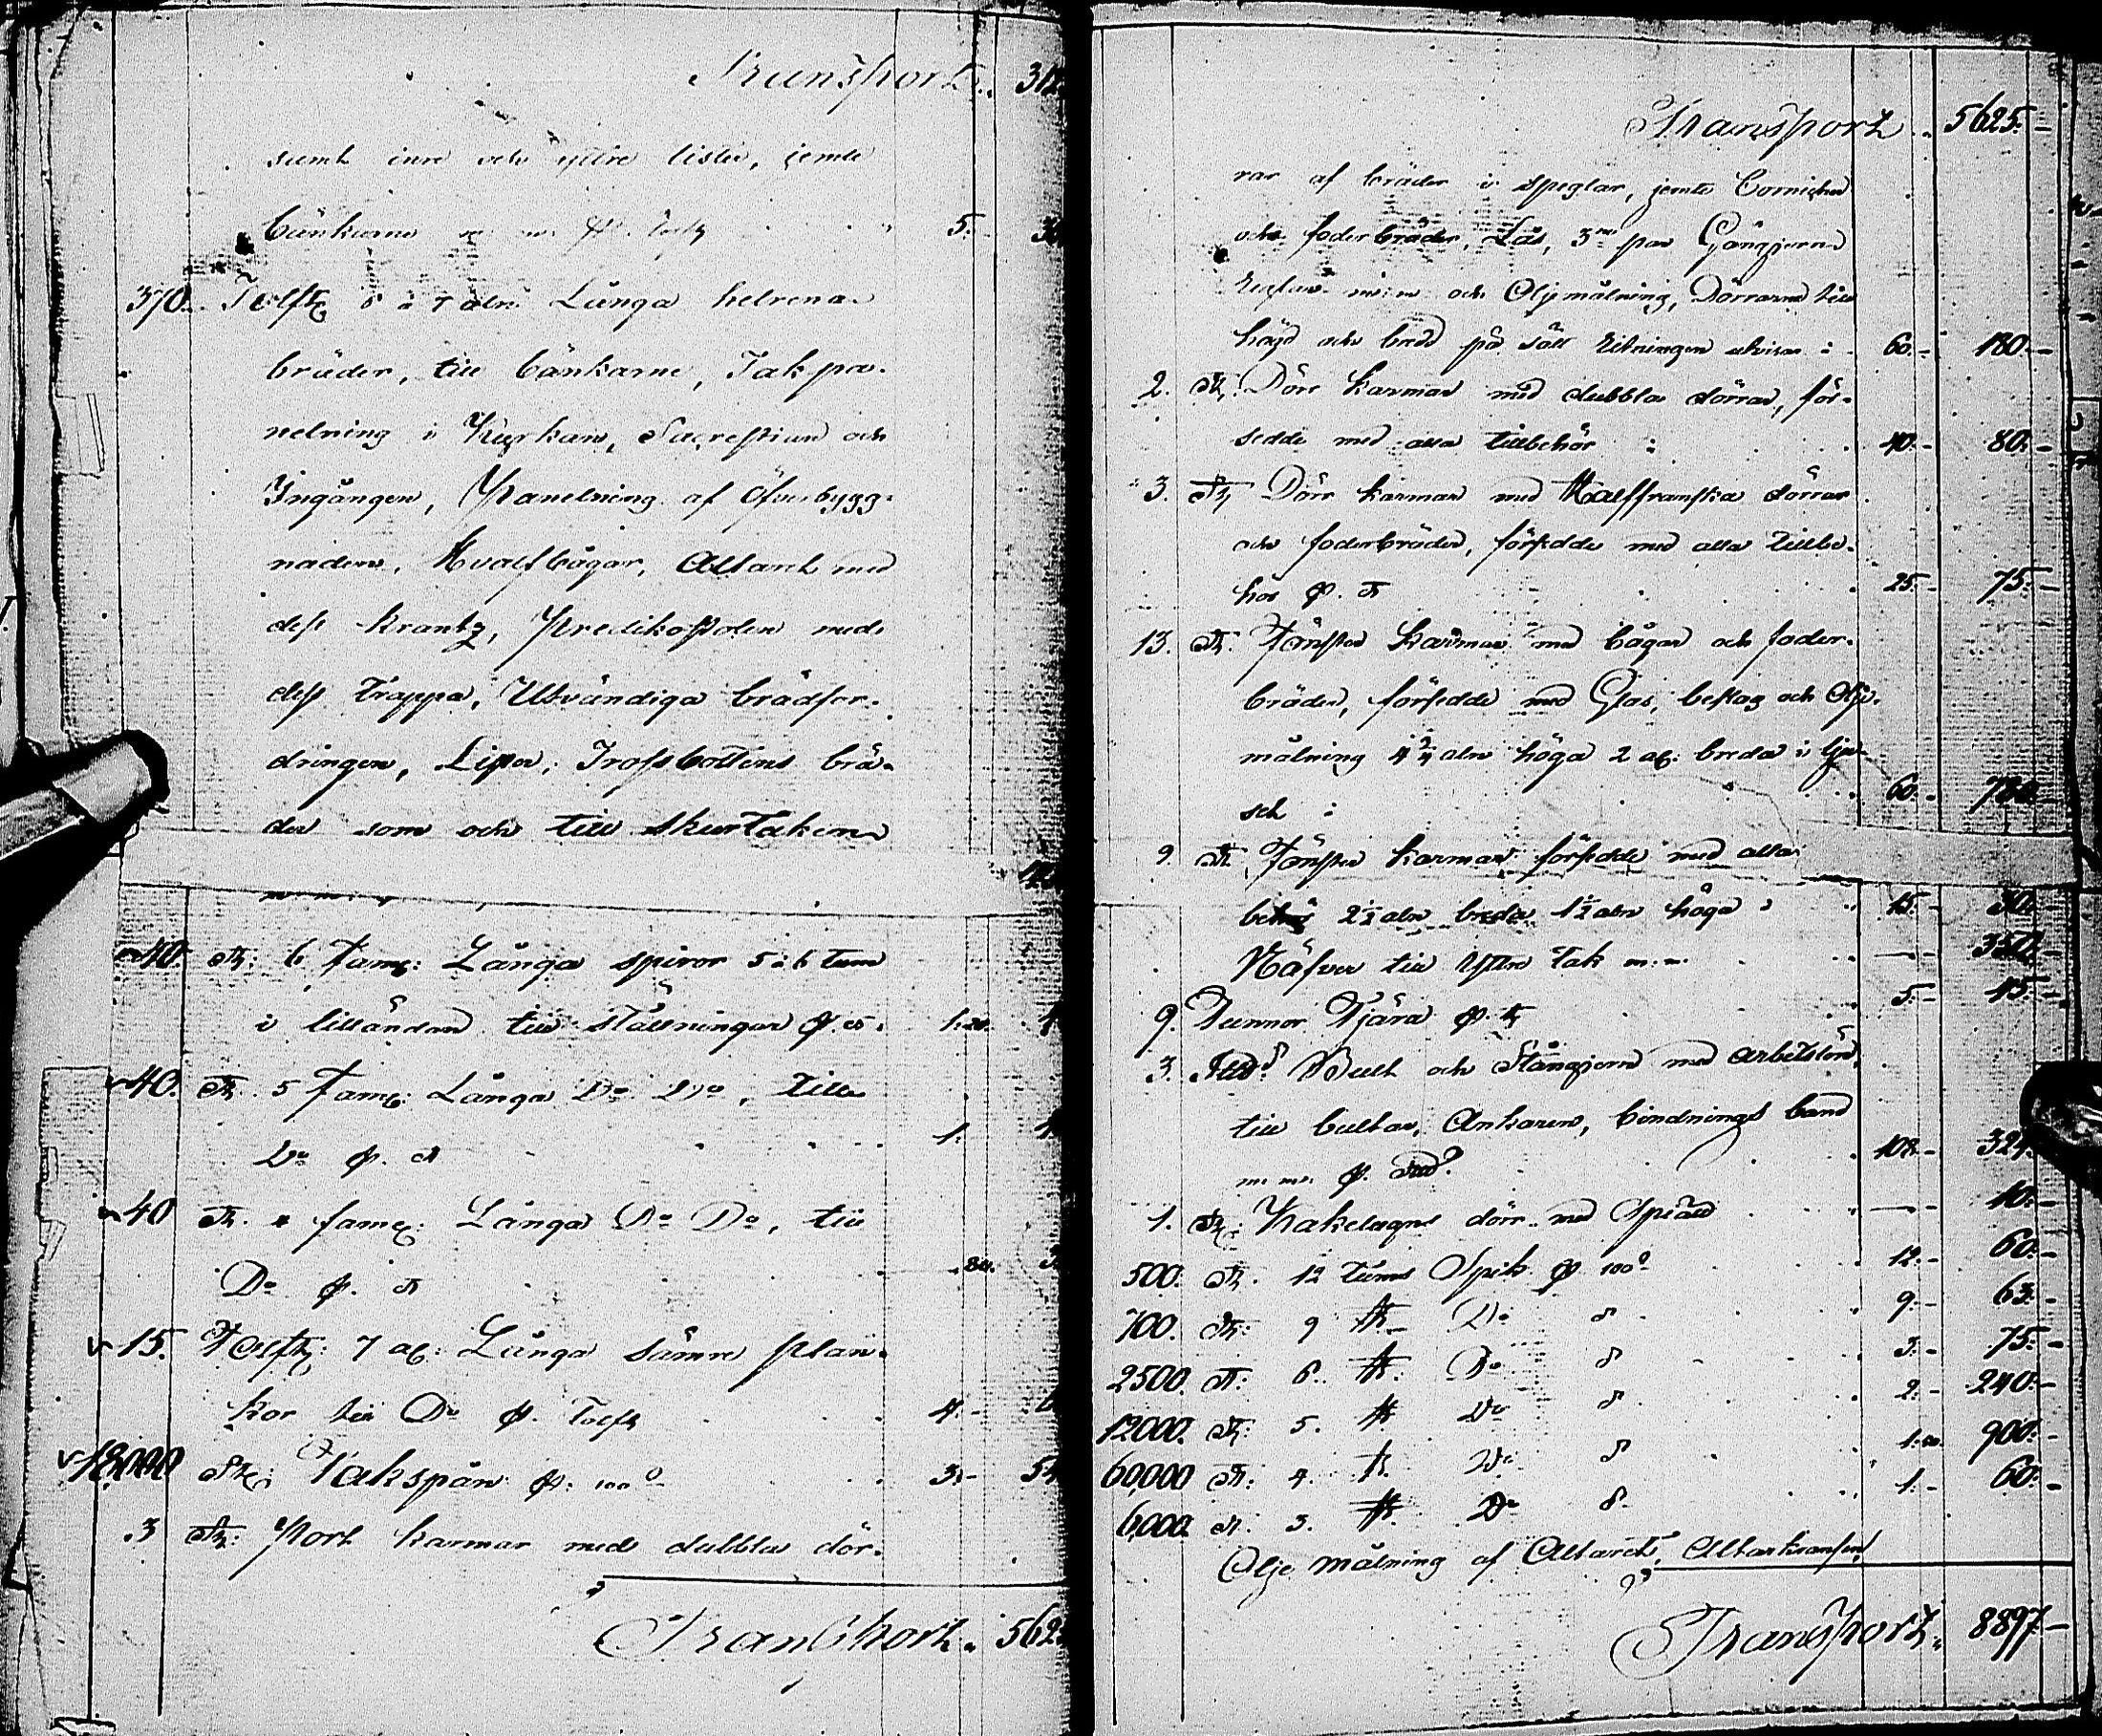 Transport.. 312
samt inre och yttre lister, jemte
bänkarne m. m. pr tolft 5.-
370. Tolfter 6 à 7 alnr Långa helrena
bräder, till bänkarne, Takpa-
nelning i Kyrkan, Sacrestian och
Ingången, Panelning af Öfverbygg-
naden, Hvalfbågar, Altaret med
dess krantz, Predikostolen med
dess trappa, Utvändiga brädfor-
dringen, Lister, Trossbottens brä-
der som och till skurtaken
40. St: 6 famr: Långa spiror 5 à 6 tum
i lilländan till ställningar pr st.
40. St. 5 famr: Långa Do Do, till
Do pr. st 1.
40 St. 4 famr: Långa Do Do, till
Do pr. st 80.
15. Tolfter 7 al: Långa sämre plan-
kor till Do pr. Tolft 4.-
18,000 St: Takspån pr. 100 3.- 54
3 St: Port karmar med dubbla dör-
Transport. 562
Transport.. 5625.-
rar af bräder i speglar, jemte Cornicher
och foderbräder, Lås, 3ne par Gångjern
m: m: och Oljemålning, Dörrarne till
högd och bredd på sätt Ritningen utvisar : 60.- 180.-
2. St. Dörr karmar med dubbla dörrar, för-
sedde med alla tillbehör : 40.- 80.-
3. St. Dörr karmar med Halffranska dörrar
och foderbräder, försedde med alla tillbe-
hör pr. st 25.- 75.-
13. St. Fönster karmar med bågar och foder-
bräder, försedde med Glas, beslag och Olje-
målning 4 2/4 alnr höga 2 al: breda i ljus
60.- 780.-
9. St. Fönster karmar försedde med alla
behör 2 1/2 alnr breda 1 1/2 alnr höga : 15.-
Näfver till Yttre Tak m: m: —.- 350.-
9. Tunnor Tjära pr. st 5.- 45.-
3. Bult och Stångjern med arbetslön
till bultar, Ankaren, bindnings band
m. m. pr. 108.- 324.
1. St: Kakelugns dörr med Spiäll —.- 10.-
500. St. 12 tums Spik pr. 100 12.- 60.-
700. St: 9 tt. Do d 9.- 63.-
2500. St: 6. tt. Do d 3.- 75.-
12000. St: 5. tt. Do d 2.- 240.-
60,000 St: 4. tt. Do d 900.-
6,000. St: 3. tt. Do d 1.- 60.-
Olje målning af Altaret, Altarkransen,
Transport. 8897.-